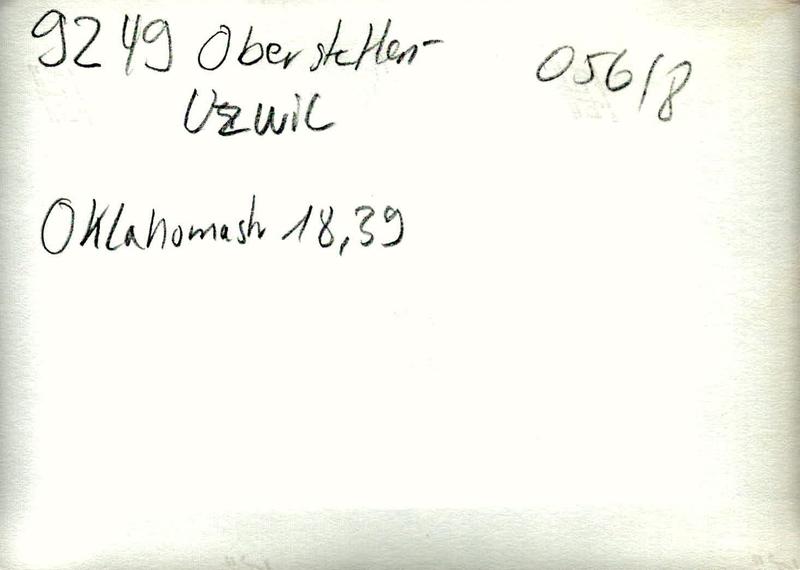 9249 Oberstetten-
Uzwil
056/8
Oklahomastr 18,39